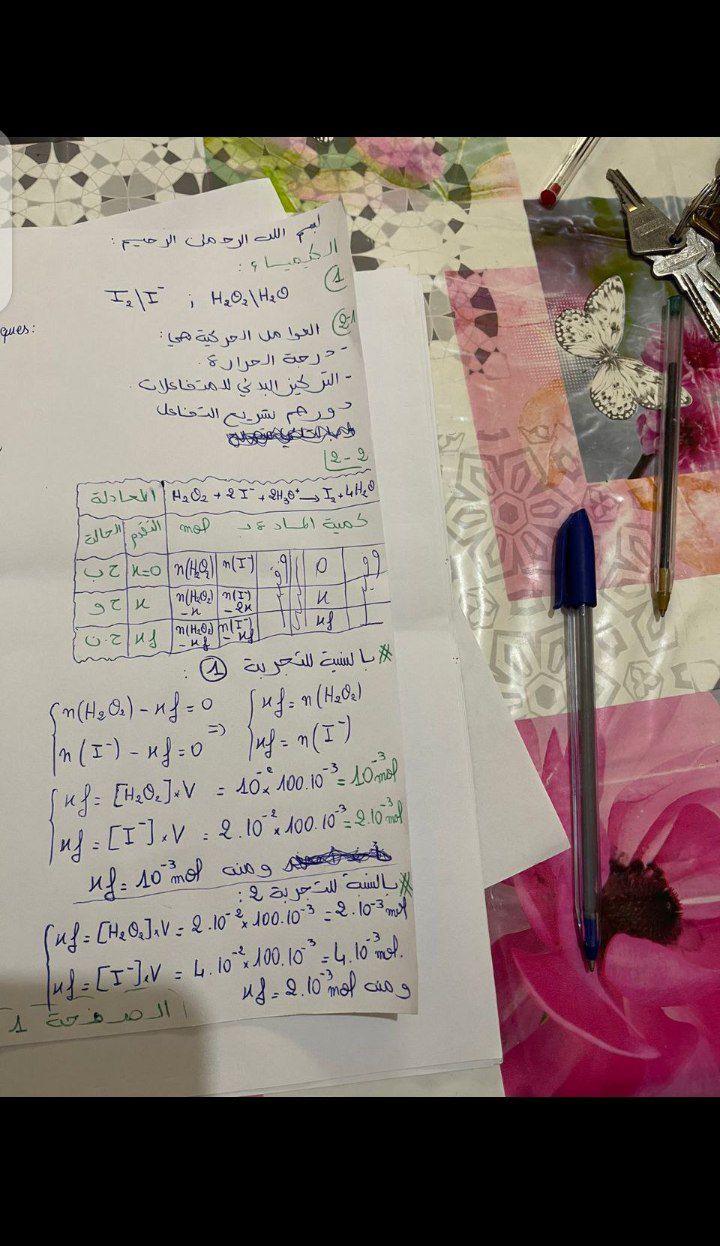 بسم الله الرحمن الرحيم:
الكيمياء:
①
I₂\I⁻ ; H₂O₂\H₂O
2-1
العوامل الحركية هي:
- درجة الحرارة.
- التركيز البدئي للمتفاعلات.
دورهم تسريع التفاعل
2-2
المعادلة | H₂O₂ + 2I⁻ + 2H₃O⁺ → I₂ + 4H₂O
الحالة | التقدم | كمية المادة بـ mol
ح ب | x=0 | n(H₂O₂) | n(I⁻) | وف | 0 | وف
ح و | x | n(H₂O₂) - x | n(I⁻) - 2x | x
ح.ن | xf | n(H₂O₂) - xf | n(I⁻) - xf | xf
* بالنسبة للتجربة ① :
n(H₂O₂) - xf = 0 => xf = n(H₂O₂)
n(I⁻) - xf = 0 xf = n(I⁻)
xf = [H₂O₂]×V = 10⁻²×100.10⁻³ = 10⁻³mol
xf = [I⁻]×V = 2.10⁻²×100.10⁻³ = 2.10⁻³mol
ومنه xf = 10⁻³mol
* بالنسبة للتجربة 2:
xf = [H₂O₂]×V = 2.10⁻²×100.10⁻³ = 2.10⁻³mol
xf = [I⁻]×V = 4.10⁻²×100.10⁻³ = 4.10⁻³mol.
ومنه xf = 2.10⁻³mol
الصفحة 1
ques: